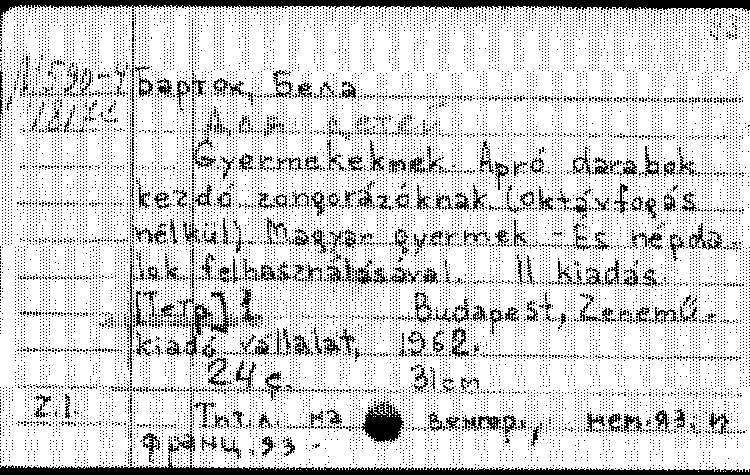 Барток, Бела
Для детей
Gyermekeknek. Apró darabok
kezdó zongorázóknak (oktávfogás
nélkül) Magyar gyermek - És népda
lok felhasználásával. II kiadás
[Тетр.] 1. Budapest, Zenemű-
kiadó vállalat, 1962.
24 с. 31cm
2.1. Тит.л. на венгер., нем.яз. и
франц.яз -